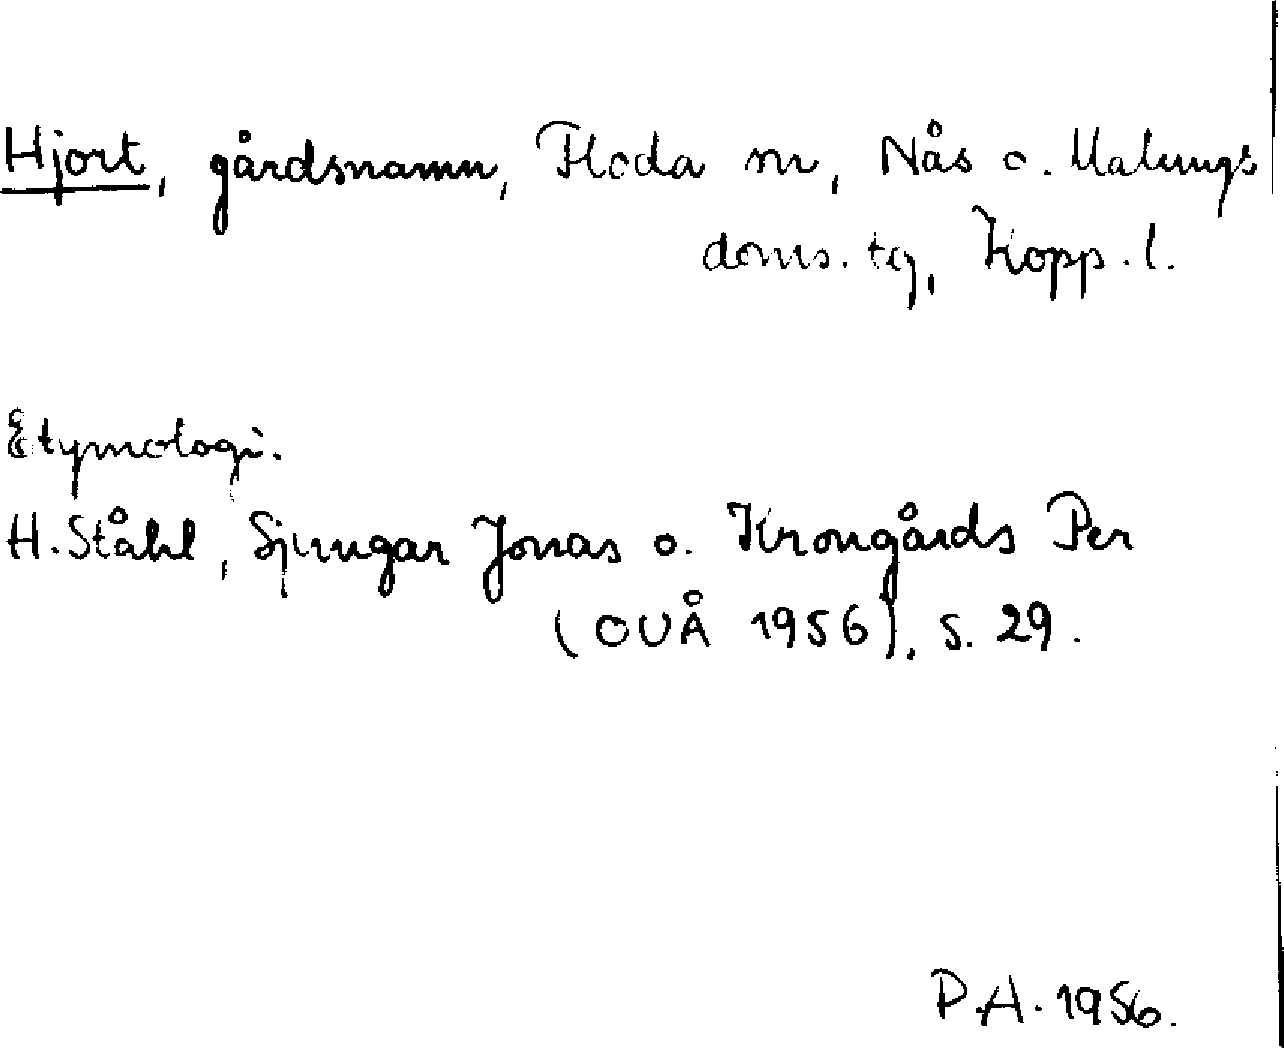 Hjort, gårdsnamn, Floda sn, Nås o. Malungs
doms. tg, Kopp. l.
Etymologi.
H. Ståhl, Sjungar Jonas o. Krongårds Per
(OUÅ 1956), s. 29.
P.A. 1956.